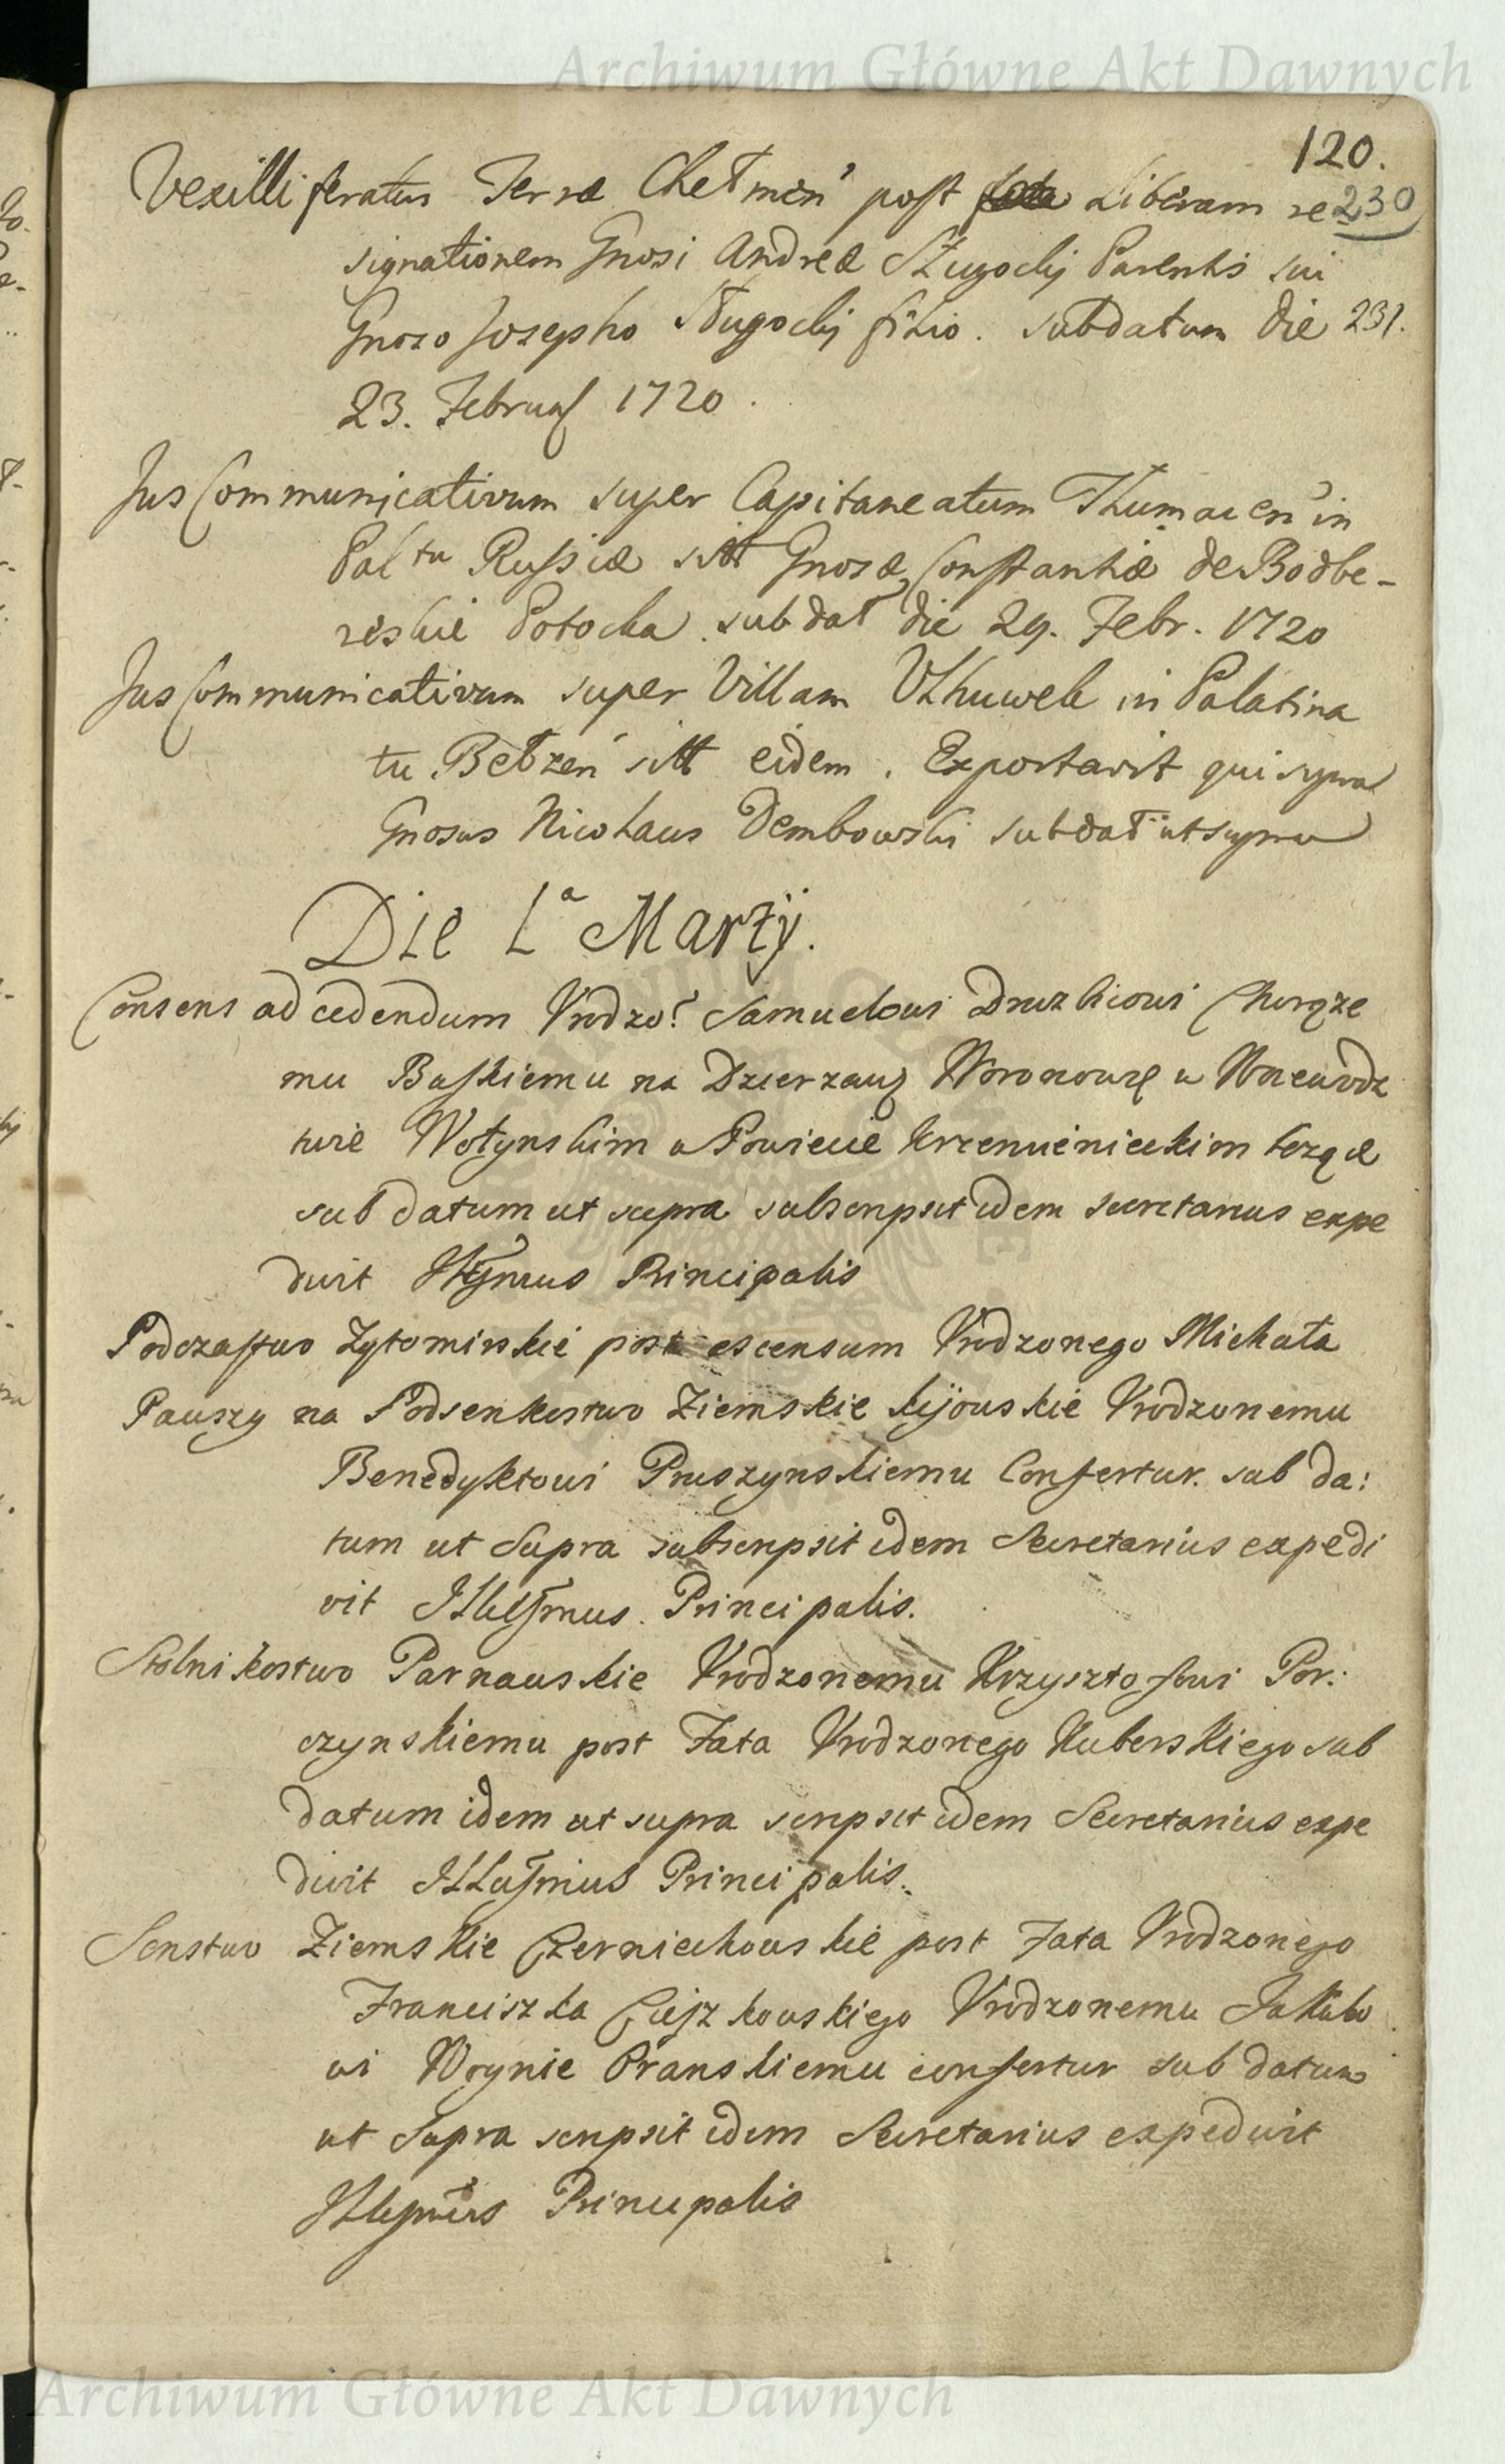 Archiwum Główne Akt Dawnych
120.
Vexilliferatus Terræ Chełmen post Liberam re
230
signationem Gnosi Andreæ Długocki Parentis sui
Gnoso Josepho Długocki filio. subdatum die 231.
23. Februar 1720.
Jus Communicativum super Capitaneatum Tłumacen in
Paltu Russiæ sitt Gnosæ Constantiæ de Podbe-
reskie Potocka. subdat die 29. Febr. 1720
Jus Communicativum super Villam Ułhuwek in Palatina
tu Bełzen sitt eidem. Exportavit qui supra
Gnosus Nicolaus Dembowski subdat ut supra
Die 1a Martij.
Consens ad cedendum Vrodzo: Samuelowi Druzbicowi Chorąze
mu Baskiemu na Dzierzawę Woronowcę w Woiewodz
twie Wołynskim w Powiecie Krzemienieckim lezące
sub datum ut supra subscripsit idem secretarius expe
divit Illmus Principalis
Podczastwo Zytomirskie post ascensum Vrodzonego Michała
Pauszy na Podsenkostwo Ziemskie kijowskie Vrodzonemu
Benedyktowi Pruszynskiemu Confertur. sub da:
tum ut Supra subscripsit idem Secretarius expedi
vit Principalis.
Stolnikostwo Parnawskie Vrodzonemu Krzysztofowi Por:
czynskiemu post Fata Vrodzonego Kuberskiego sub
datum idem ut supra scripsit idem Secretarius expe
divit Principalis.
Senstwo Ziemskie Czerniechowskie post Fata Vrodzonego
Franciszka Vrodzonemu Jakubo
wi Woynie Oranskiemu confertur sub datum
ut Supra scripsit idem Secretarius expedivit
Principalis
Archiwum Główne Akt Dawnych